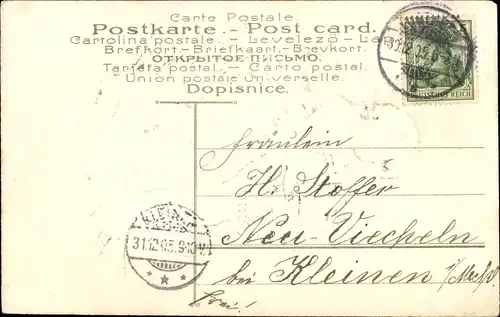 Carte Postale
Postkarte.- Post card.
Cartolina postal. - Levelezö - La
Brefkort.- Briefkaart.- Brevkort.
ОТКРЫТОЕ ПИСЬМО.
Tarjeta postal. - Carto postal.
Union postale Universelle.
Dopisnice.
31.12.05.
Fräulein
H. Stoffer
Neu-Viecheln
bei Kleinen i/Meckl.
31.12.05.9-10V.
frei!